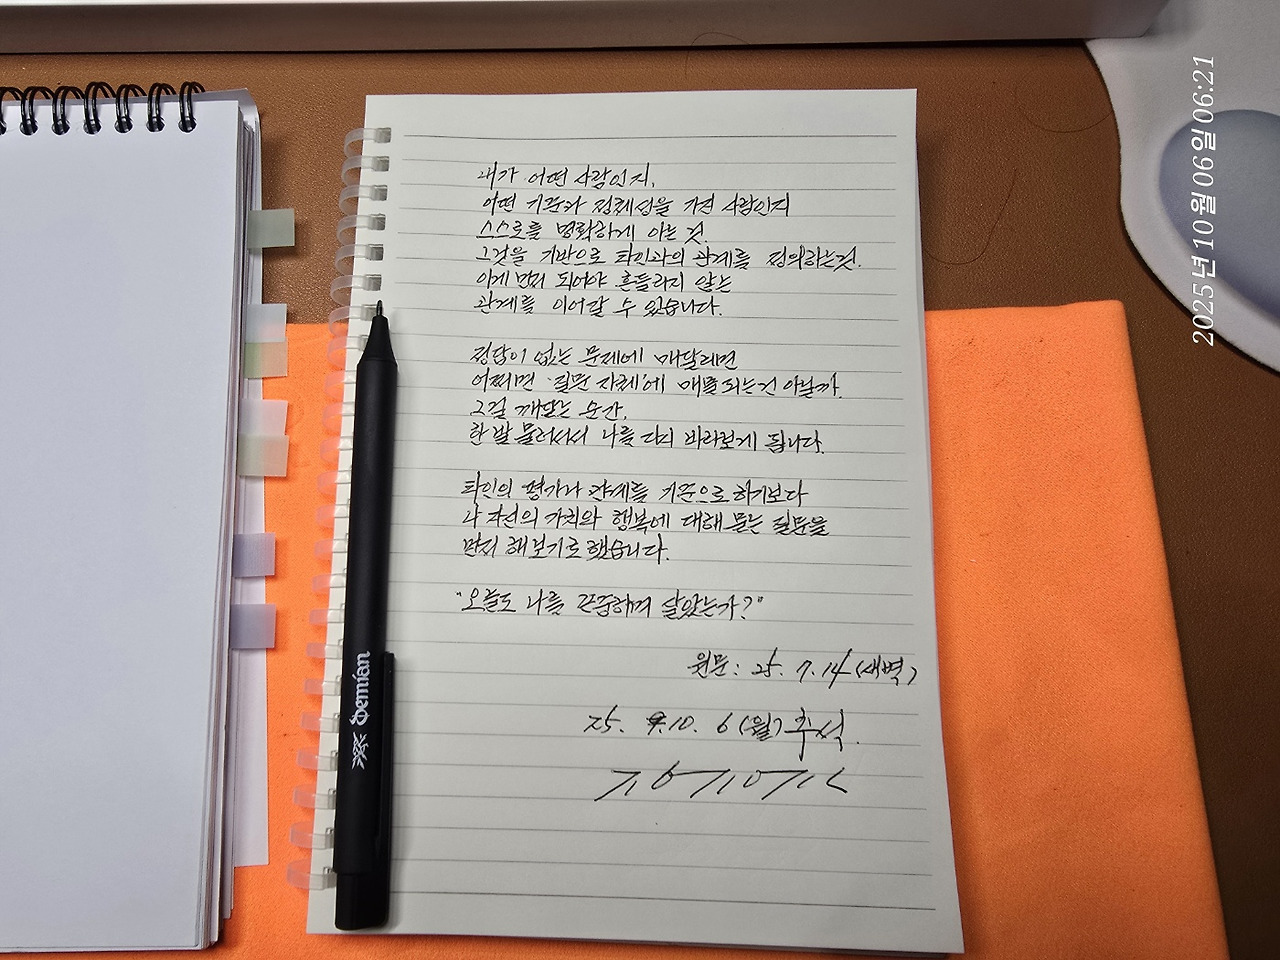 내가 어떤 사람인지,
어떤 기준과 정체성을 가진 사람인지
스스로를 명확하게 아는 것.
그것을 기반으로 타인과의 관계를 정의하는것.
이게 먼저 되어야 흔들리지 않는
관계를 이어갈 수 있습니다.
정답이 없는 문제에 매달리면
어쩌면 '질문 자체'에 매몰되는건 아닐까.
그걸 깨닫는 순간,
한 발 물러서서 나를 다시 바라보게 됩니다.
타인의 평가나 관계를 기준으로 하기보다
나 자신의 가치와 행복에 대해 묻는 질문을
먼저 해보기로 했습니다.
"오늘도 나를 존중하며 살았는가?"
원문: 25. 7. 14 (새벽)
25. 10. 6 (월) 추석.
Demian
2025년 10월 06일 06:21